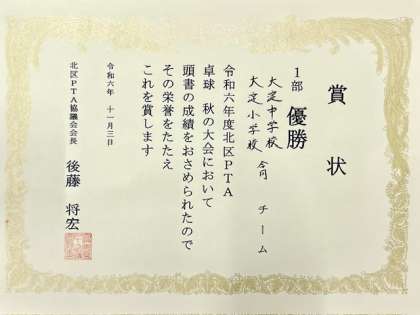 賞状
1部 優勝
大淀中学校
大淀小学校
合同チーム
令和六年度北区PTA
卓球 秋の大会において
頭書の成績をおさめられたので
その栄誉をたたえ
これを賞します
令和六年 十一月三日
北区PTA協議会会長 後藤 将宏